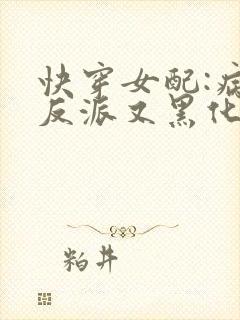 快穿女配:病
反派又黑化
粕井